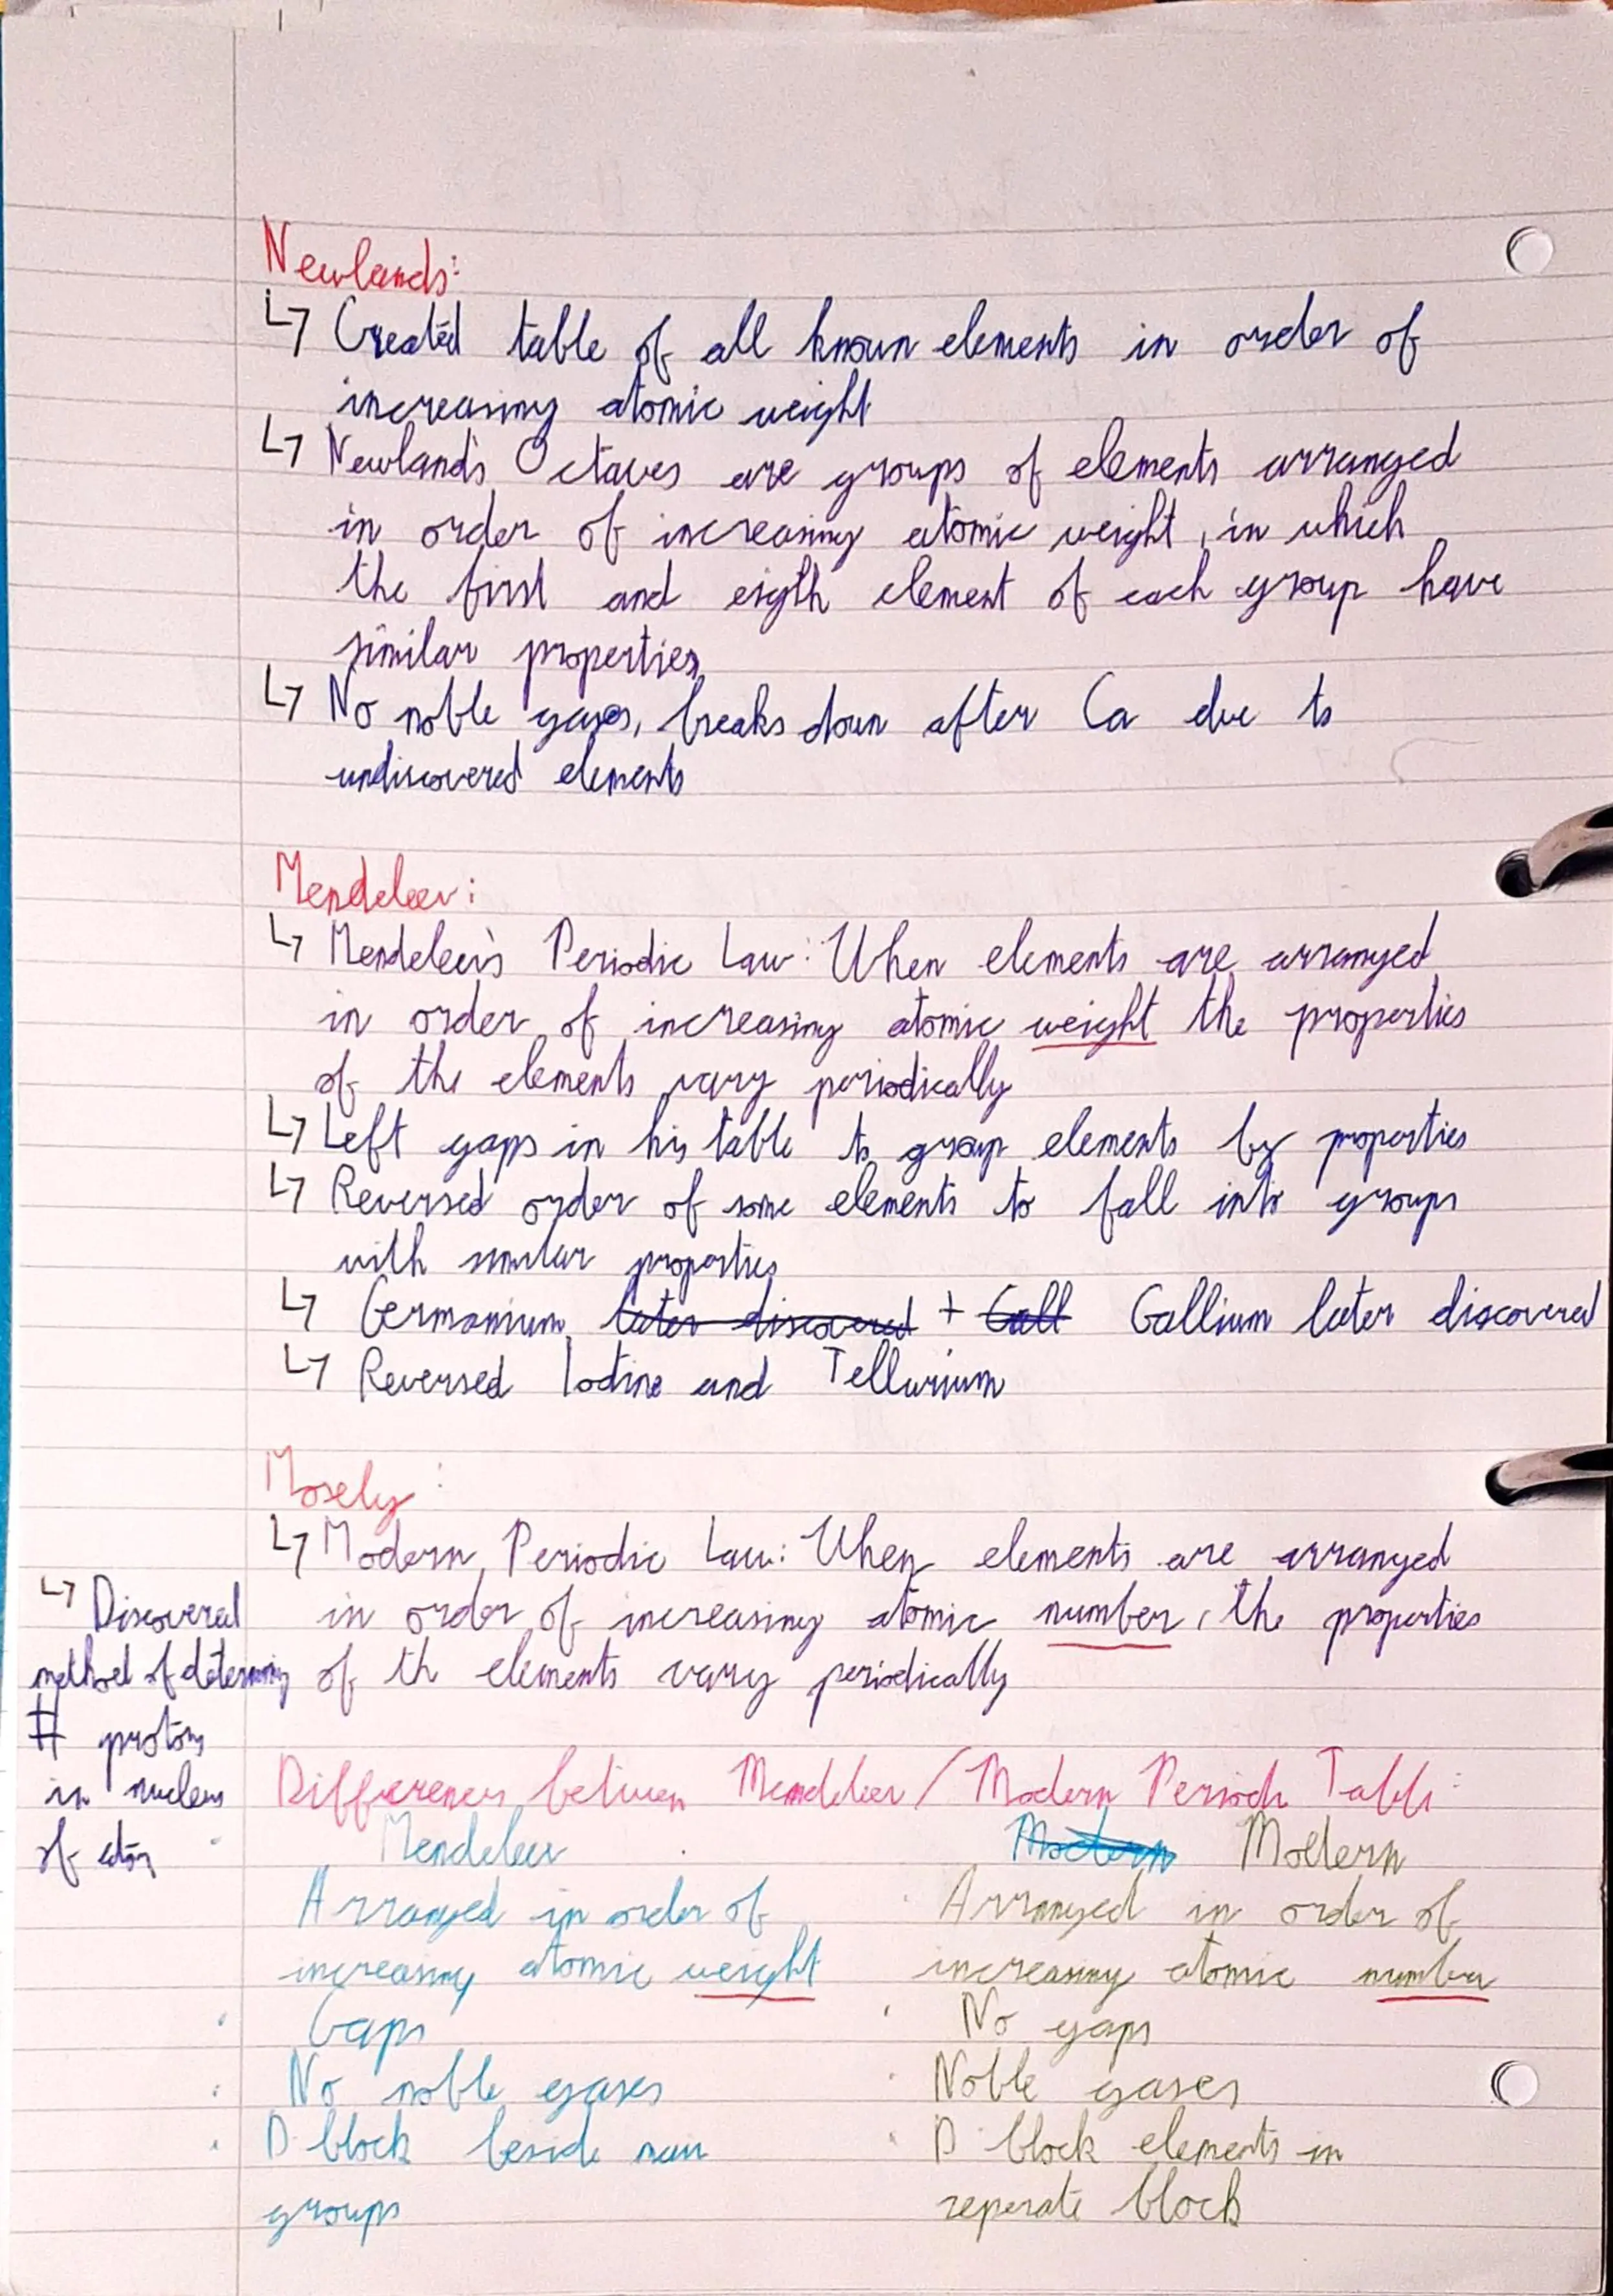 Newlands:
↳ Created table of all known elements in order of
increasing atomic weight
↳ Newland's Octaves are groups of elements arranged
in order of increasing atomic weight, in which
the first and eigth element of each group have
similar properties
↳ No noble gases, breaks down after Ca due to
undiscovered elements
Mendeleev:
↳ Mendeleev's Periodic Law: When elements are arranged
in order of increasing atomic weight the properties
of the elements vary periodically
↳ Left gaps in his table to group elements by properties
↳ Reversed order of some elements to fall into groups
with similar properties
↳ Germanium ~~later discovered~~ + ~~Gall~~ Gallium later discovered
↳ Reversed Iodine and Tellurium
Mosely:
↳ Modern Periodic Law: When elements are arranged
in order of increasing atomic number, the properties
of th elements vary periodically
↳ Discovered
method of determining
# protons
in nucleus
of atom
Differences between Mendeleev / Modern Periodic Table:
Mendeleev ~~Modern~~ Modern
Arranged in order of
increasing atomic weight
Gaps
No noble gases
D block beside main
groups
Arranged in order of
increasing atomic number
No gaps
Noble gases
D block elements in
seperate block